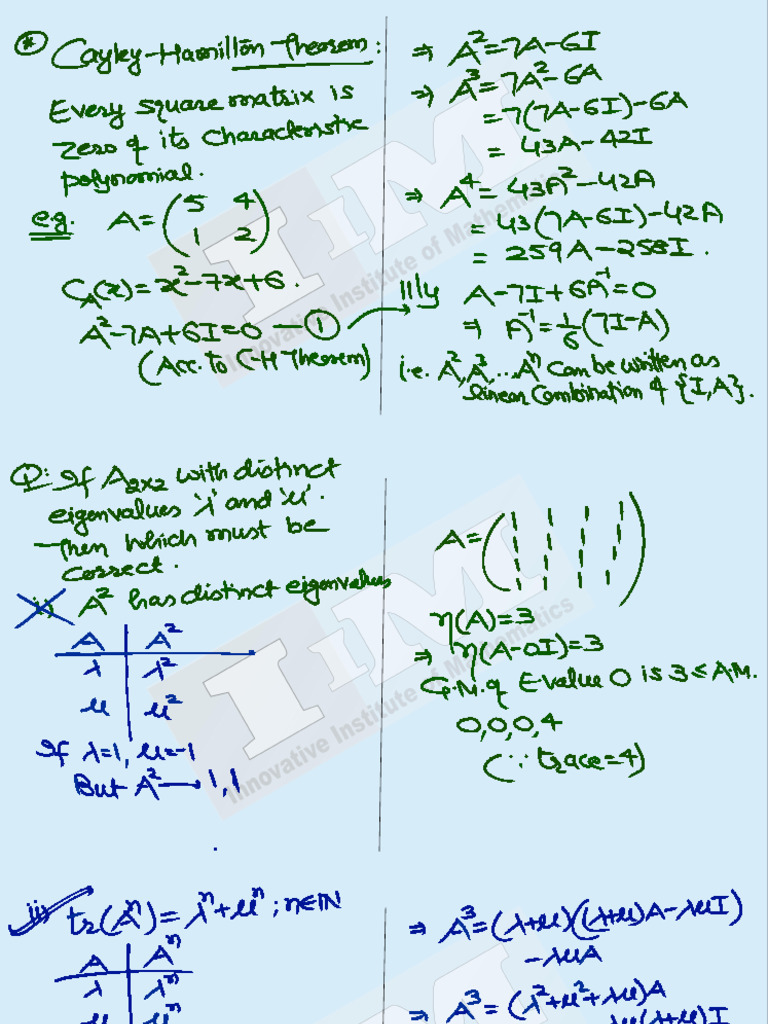 * Cayley-Hamilton Theorem:
Every square matrix is
zero of its characterstic
polynomial.
e.g. A = (5 4
1 2)
C_A(x) = x²-7x+6.
A²-7A+6I=0 — ①
(Acc. to C-H Theorem)
⇒ A²=7A-6I
⇒ A³=7A²-6A
=7(7A-6I)-6A
= 43A-42I
⇒ A⁴=43A²-42A
=43(7A-6I)-42A
= 259A-258I.
IIIly A-7I+6A⁻¹=0
⇒ A⁻¹=1/6(7I-A)
i.e. A²,A³,...Aⁿ can be written as
linear Combination of {I,A}.
Q: If A₂ₓ₂ with distinct
eigenvalues 'λ' and 'μ'.
Then which must be
correct.
i) A² has distinct eigenvalues
A A²
λ λ²
μ μ²
If λ=1, μ=-1
But A² → 1,1
A= (1 1 1 1
1 1 1 1
1 1 1 1
1 1 1 1)
η(A)=3
⇒ η(A-0I)=3
G.M. of E value 0 is 3 ≤ A.M.
0,0,0,4
(∵ trace=4)
ii) tr(Aⁿ)=λⁿ+μⁿ; n∈IN
A Aⁿ
λ λⁿ
μ μⁿ
⇒ A³=(λ+μ)((λ+μ)A-λμI)
-λμA
⇒ A³=(λ²+μ²+λμ)A
-λμ(λ+μ)I
IIM
Innovative Institute of Mathematics
IIM
Innovative Institute of Mathematics
IIM